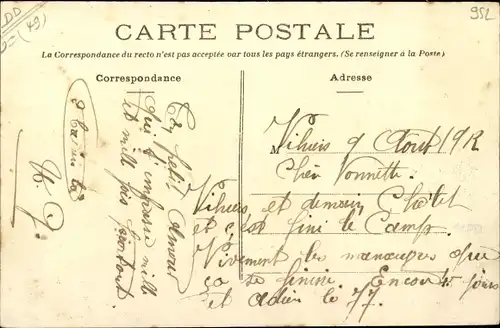 952
CARTE POSTALE
La Correspondance du recto n'est pas acceptée par tous les pays étrangers. (Se renseigner à la Poste)
Correspondance
Adresse
M
Vihiers 9 Aout 1912
Chère Yonnette
Vihiers, et demain, Châlet
et c'est fini le Camp.
Vivement les manœuvres que
ça se finisse. Encore 45 jours
et adieu le 77.
petit Amour
qui t'embrasse mille
et mille fois
partout